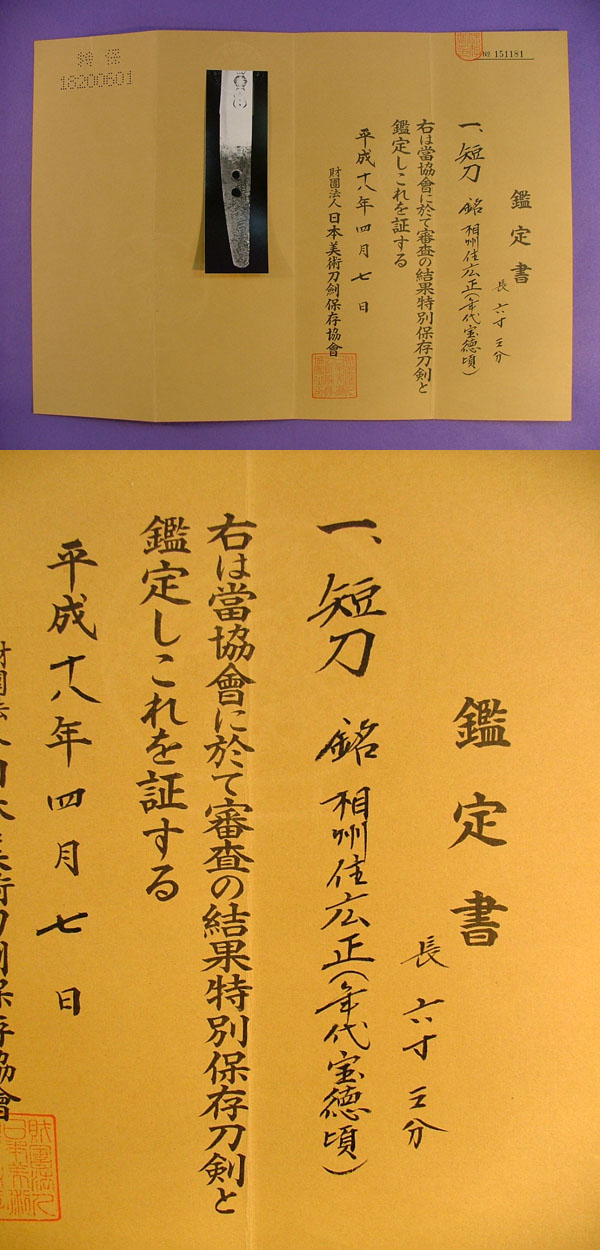 18200601
№ 151181
鑑定書
長 六寸 五分
一、短刀 銘 相州住広正(年代宝徳頃)
右は當協會に於て審査の結果特別保存刀剣と
鑑定しこれを証する
平成十八年四月七日
財團法人日本美術刀劍保存協會
鑑定書
長 六寸 五分
一、短刀 銘 相州住広正(年代宝徳頃)
右は當協會に於て審査の結果特別保存刀剣と
鑑定しこれを証する
平成十八年四月七日